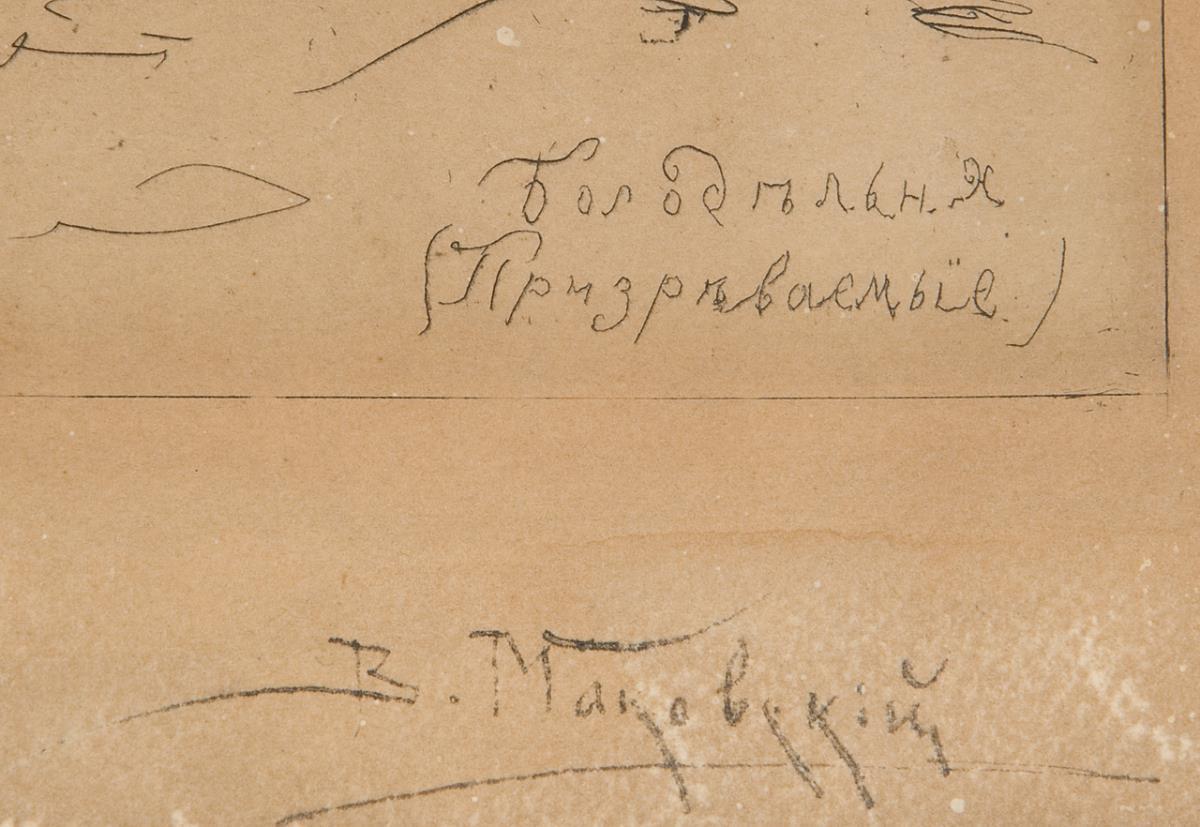 Богодѣльня
(Призрѣваемые)
В. Маковскій